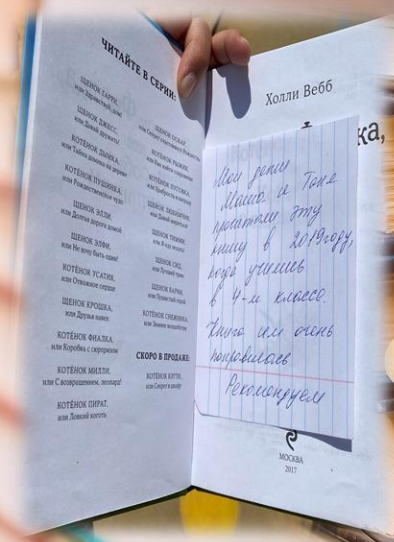 ЧИТАЙТЕ В СЕРИИ:
ЩЕНОК ГАРРИ,
или Здравствуй, дом!
ЩЕНОК ДЖЕСС,
или Давай дружить!
КОТЁНОК ДЫМКА,
или Тайна домика на дереве
КОТЁНОК ПУШИНКА,
или Рождественское чудо
ЩЕНОК ЭЛЛИ,
или Долгая дорога домой
ЩЕНОК ЭЛФИ,
или Не хочу быть один!
КОТЁНОК УСАТИК,
или Отважное сердце
ЩЕНОК КРОШКА,
или Друзья навек
КОТЁНОК ФИАЛКА,
или Коробка с сюрпризом
КОТЁНОК МИЛЛИ,
или С возвращением, леопард!
КОТЁНОК ПИРАТ,
или Ловкий коготь
ЩЕНОК ОСКАР,
или Секрет счастливого Рождества
КОТЁНОК РЫЖИК,
КОТЁНОК ПУГОВКА,
или Храбрость в награду
или Давай мириться!
ЩЕНОК ТИММИ,
или Я иду искать!
ЩЕНОК СИД,
или Лучший трюк
ЩЕНОК БАРНИ,
или Пушистый герой
КОТЁНОК СНЕЖИНКА,
или Зимнее волшебство
СКОРО В ПРОДАЖЕ:
КОТЁНОК КЭТТИ,
или Секрет в шкафу
Холли Вебб
Мои дочки
Маша и Таня
прочитали эту
книгу в 2019 году,
когда учились
в 4-м классе.
Книга им очень
понравилась
Рекомендуем
МОСКВА
2017